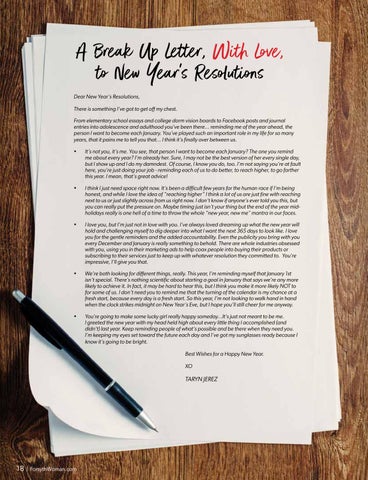 A Break Up Letter, With Love,
to New Year's Resolutions
Dear New Year's Resolutions,
There is something I've got to get off my chest.
From elementary school essays and college dorm vision boards to Facebook posts and journal
entries into adolescence and adulthood you've been there… reminding me of the year ahead, the
person I want to become each January. You've played such an important role in my life for so many
years, that it pains me to tell you that… I think it's finally over between us.
• It's not you, it's me. You see, that person I want to become each January? The one you remind
me about every year? I'm already her. Sure, I may not be the best version of her every single day,
but I show up and I do my damndest. Of course, I know you do, too. I'm not saying you're at fault
here, you're just doing your job - reminding each of us to do better, to reach higher, to go farther
this year. I mean, that's great advice!
• I think I just need space right now. It's been a difficult few years for the human race if I'm being
honest, and while I love the idea of "reaching higher" I think a lot of us are just fine with reaching
next to us or just slightly across from us right now. I don't know if anyone's ever told you this, but
you can really put the pressure on. Maybe timing just isn't your thing but the end of the year mid-
holidays really is one hell of a time to throw the whole "new year, new me" mantra in our faces.
• I love you, but I'm just not in love with you. I've always loved dreaming up what the new year will
hold and challenging myself to dig deeper into what I want the next 365 days to look like. I love
you for the gentle reminders and the added accountability. Even the publicity you bring with you
every December and January is really something to behold. There are whole industries obsessed
with you, using you in their marketing ads to help coax people into buying their products or
subscribing to their services just to keep up with whatever resolution they committed to. You're
impressive, I'll give you that.
• We're both looking for different things, really. This year, I'm reminding myself that January 1st
isn't special. There's nothing scientific about starting a goal in January that says we're any more
likely to achieve it. In fact, it may be hard to hear this, but I think you make it more likely NOT to
for some of us. I don't need you to remind me that the turning of the calendar is my chance at a
fresh start, because every day is a fresh start. So this year, I'm not looking to walk hand in hand
when the clock strikes midnight on New Year's Eve, but I hope you'll still cheer for me anyway.
• You're going to make some lucky girl really happy someday…It's just not meant to be me.
I greeted the new year with my head held high about every little thing I accomplished (and
didn't) last year. Keep reminding people of what's possible and be there when they need you.
I'm keeping my eyes set toward the future each day and I've got my sunglasses ready because I
know it's going to be bright.
Best Wishes for a Happy New Year.
XO
TARYN JEREZ
18 | ForsythWoman.com